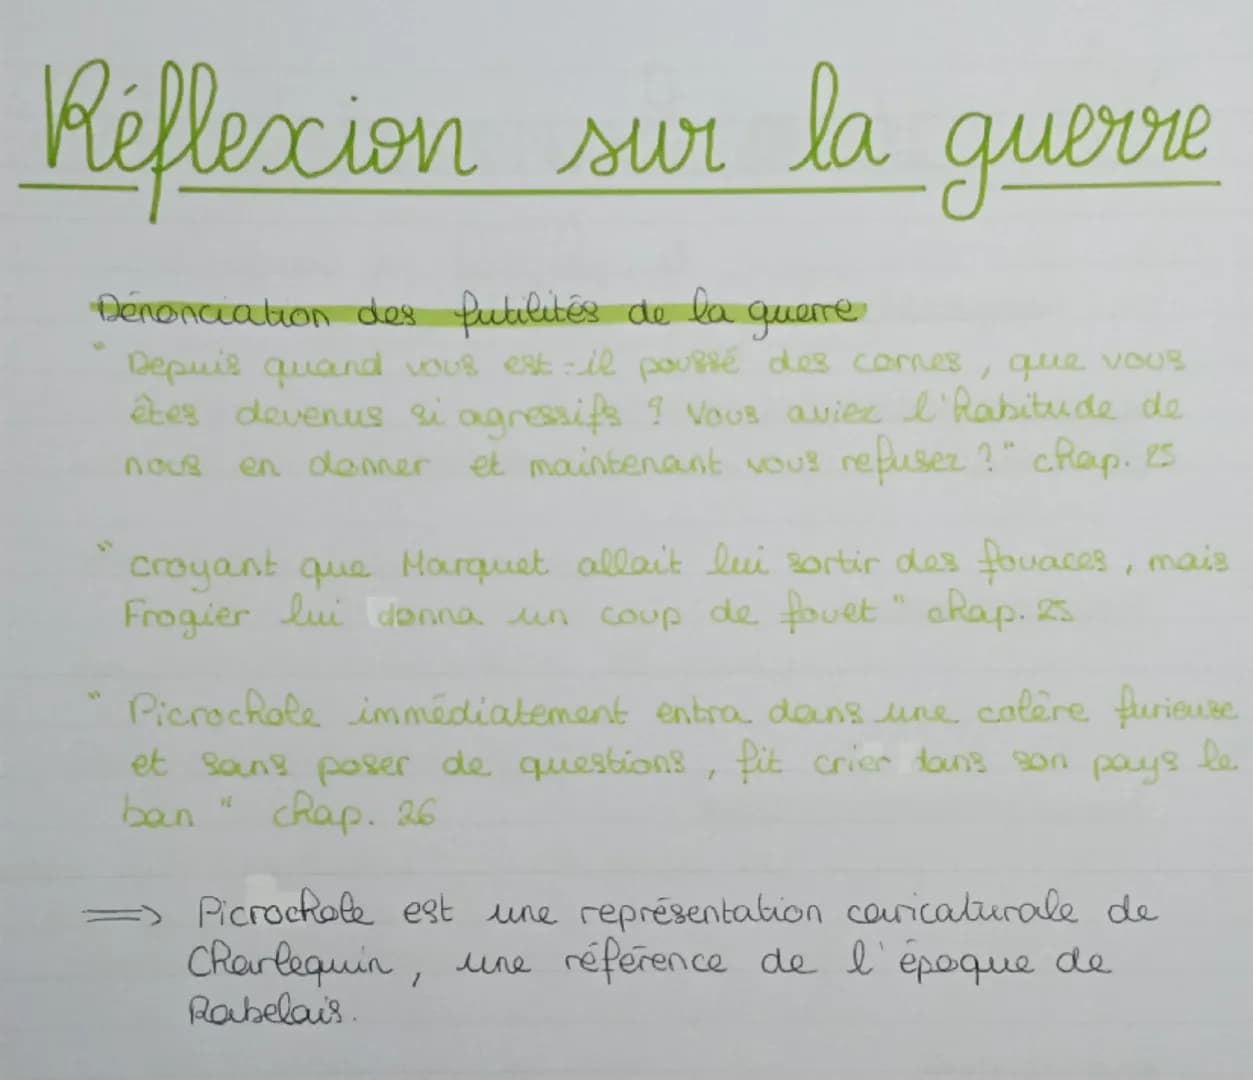 Réflexion sur la guerre
Dénonciation des futilités de la guerre
" Depuis quand vous est-il poussé des cornes, que vous
êtes devenus si agressifs ? Vous aviez l'habitude de
nous en donner et maintenant vous refusez ?" chap. 25
" croyant que Marquet allait lui sortir des fouaces, mais
Frogier lui donna un coup de fouet " chap. 25
" Picrochole immédiatement entra dans une colère furieuse
et sans poser de questions, fit crier dans son pays le
ban " chap. 26
=> Picrochole est une représentation caricaturale de
Charlequin, une référence de l'époque de
Rabelais.